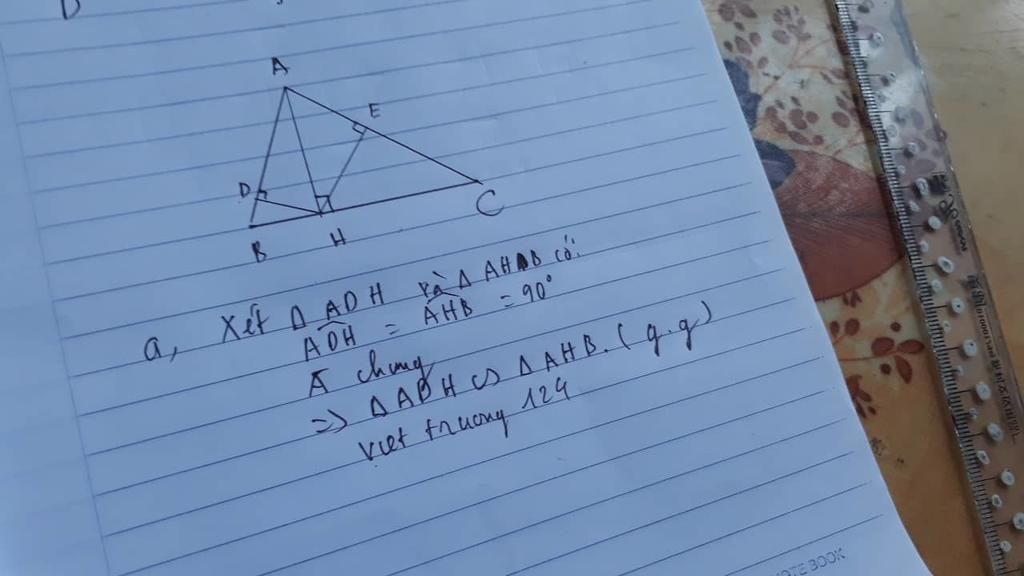 D
A
E
D
B
H
C
a, Xét Δ ADH và Δ AHB có:
ADH = AHB = 90°
A chung
=> Δ ADH ᔕ Δ AHB. (g.g)
viettruong 124
NOTE BOOK